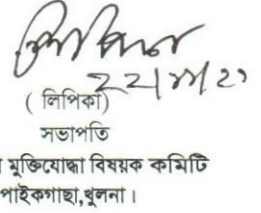 ( লিপিকা )
সভাপতি
মুক্তিযোদ্ধা বিষয়ক কমিটি
পাইকগাছা,খুলনা।